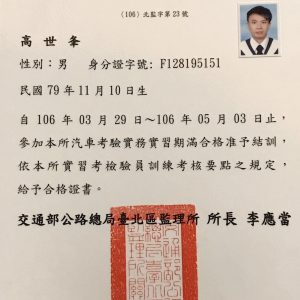 (106) 北監字第23號
高世峯
性別：男 身分證字號：F128195151
民國79年11月10日生
自106年03月29日～106年05月03日止，
參加本所汽車考驗實務實習期滿合格准予結訓，
依本所實習考檢驗員訓練考核要點之規定，
給予合格證書。
交通部公路總局臺北區監理所 所長 李應當